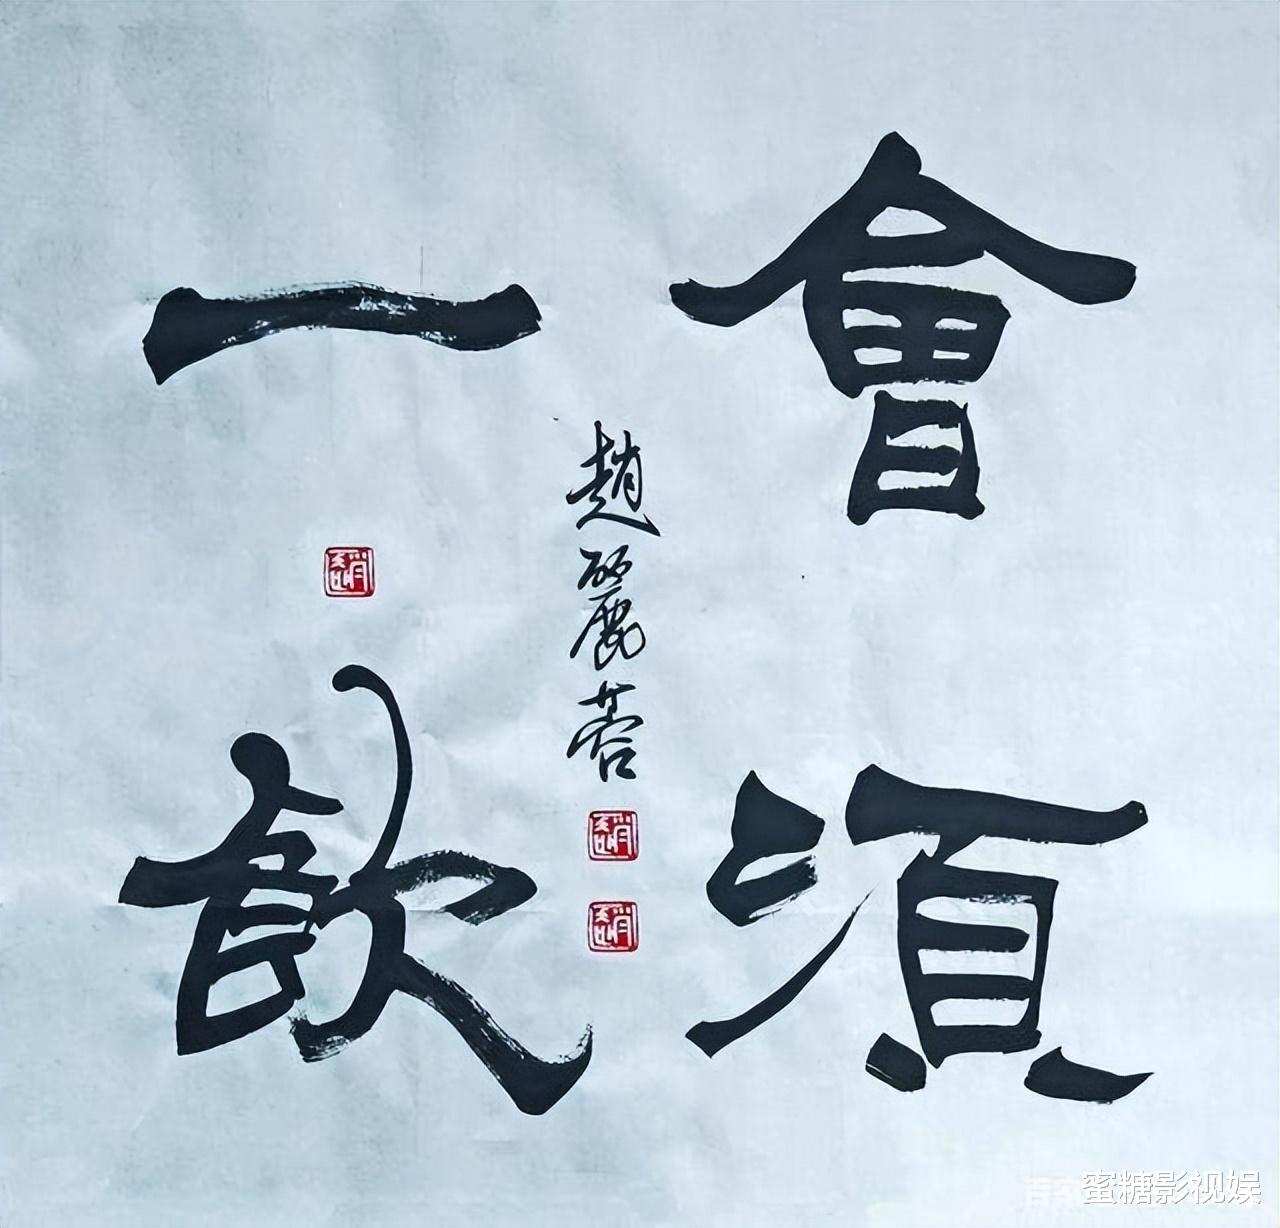 會須
一飲
趙麗蓉
蜜糖影视娱